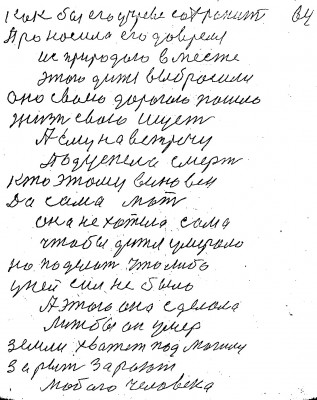 как бы его у чреве сохранит 64
Проносила его до время
ис природого вместе
этого дитя выбросили
оно свою дорогою пошло
жизн свою ищет
А ему на встречу
Подуспела смерт
кто этому виновен
Да сама мат
она не хотела сама
чтобы дитя умерало
но поделат что либо
у ней сил не было
А этого она сделала
лишбы он умер
земли хватет под могилу
Зарыт Зароют
любого человека